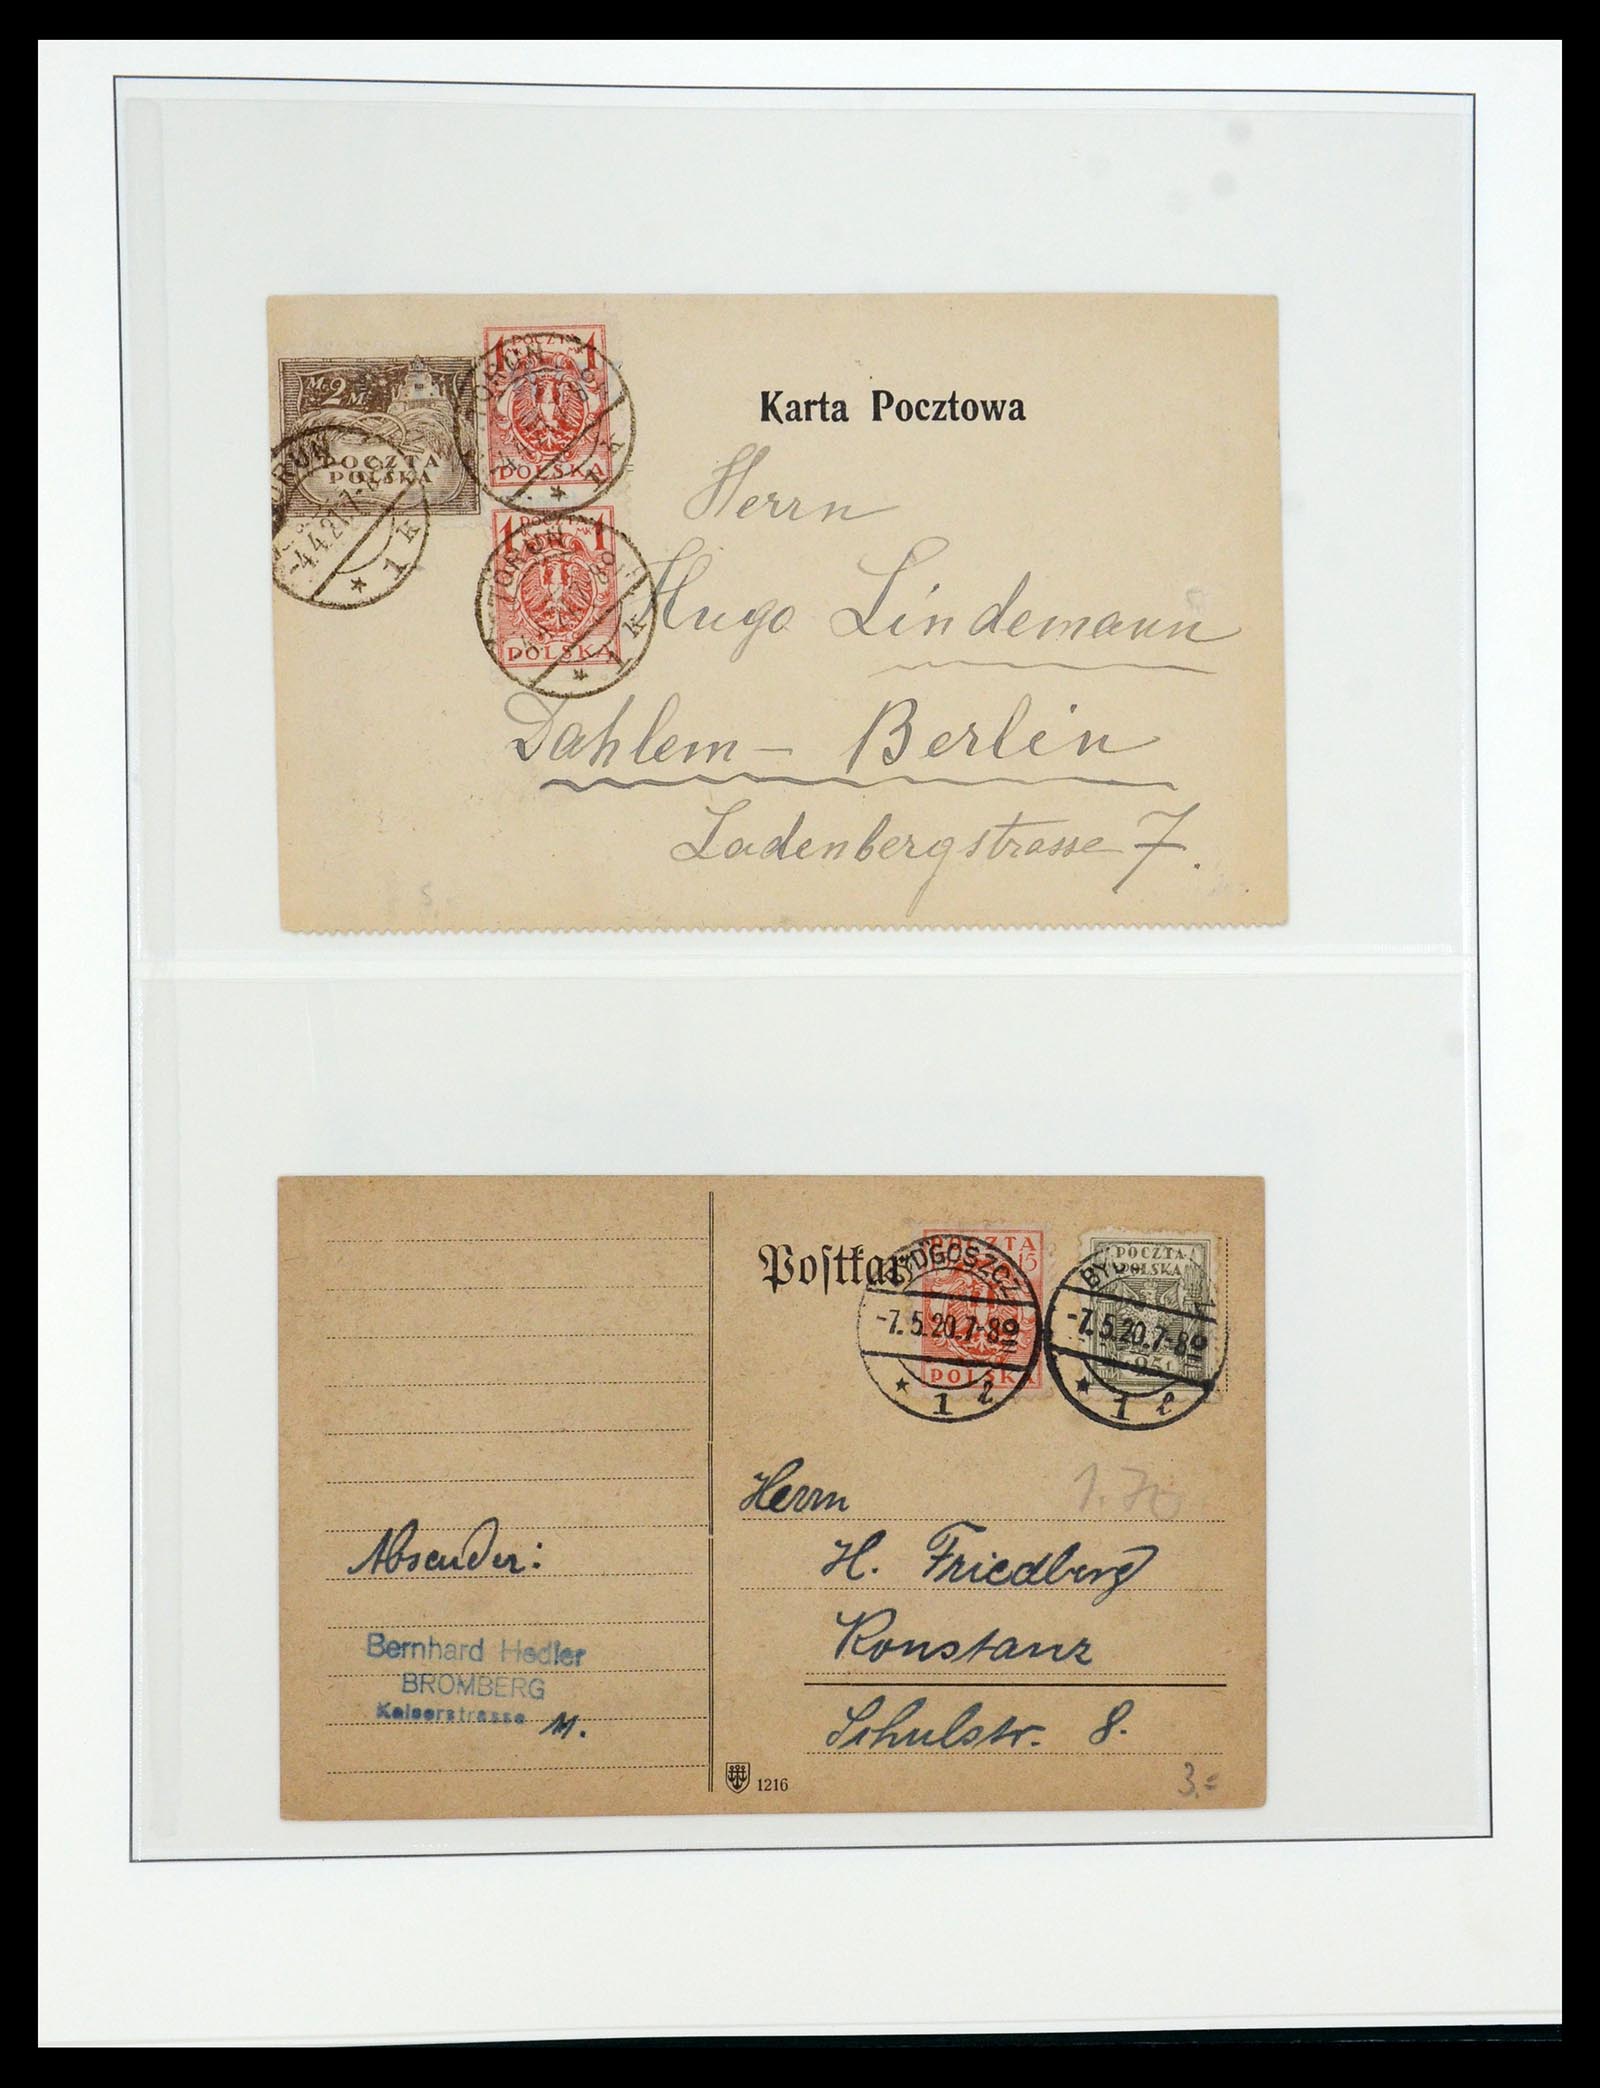 Karta Pocztowa
M. 2 M.
POCZTA
POLSKA
1 POCZTA 1
POLSKA
1 POCZTA 1
MK
POLSKA
TORUŃ
-4.4.21.7-
* 1 k
TORUŃ
* 1 k
TORUŃ
* 1 k
Herrn
Hugo Lindemann
Dahlem - Berlin
Ladenbergstrasse 7.
5.-
Postkar
POCZTA
15
POLSKA
POCZTA
POLSKA
25 f
BYDGOSZCZ
-7.5.20.7-8V
* 1 l
BYD
-7.5.20.7-8V
* 1 l
1.70
Herrn
H. Friedberg
Konstanz
Schulstr. 8.
Absender:
Bernhard Hedler
BROMBERG
Kaiserstrasse 11.
1216
3.=